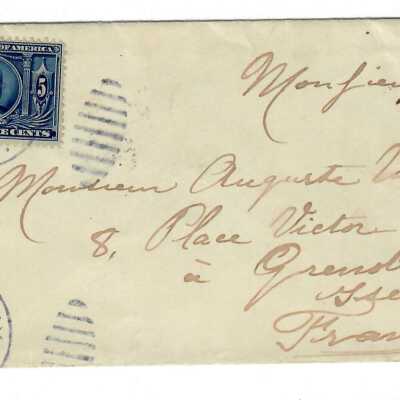 OF AMERICA
5
E CENTS
Monsieu
Monsieur Auguste
8, Place Victor
à Grenob
Isè
Fran